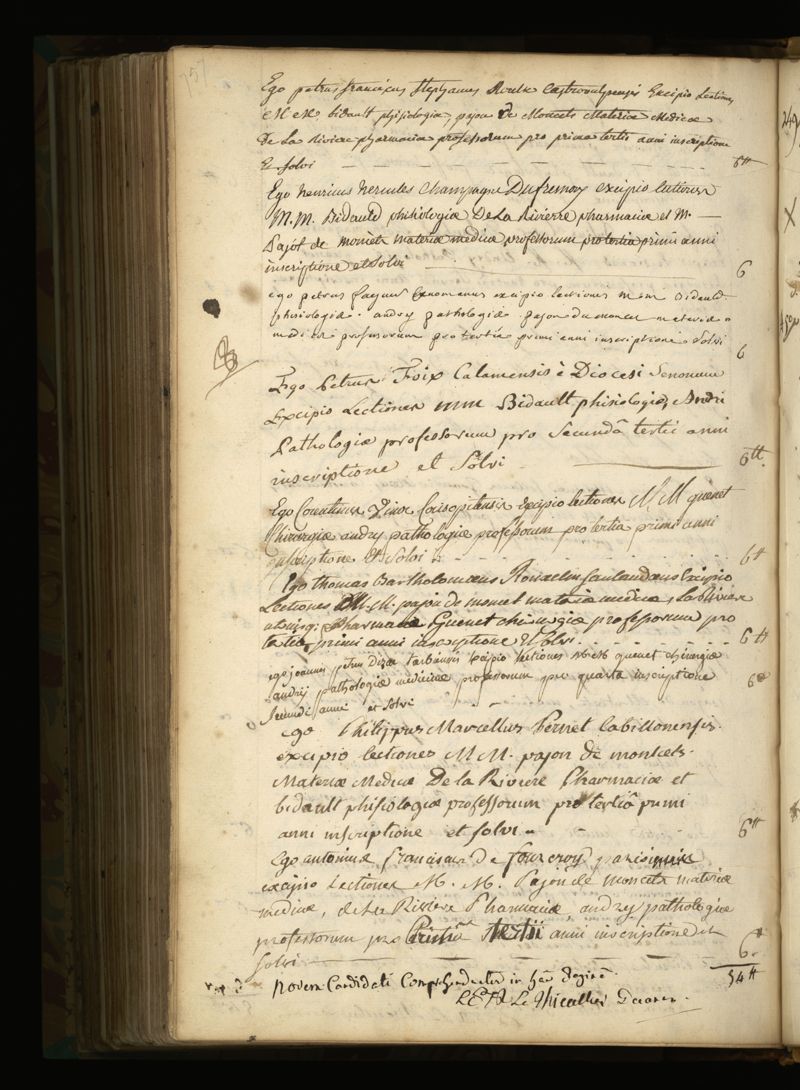 757
Ego petrus franciscus Stephanus excipio Lectiones
M M bidault phisiologiæ, pajon de Moncets Materiæ Medicæ
De La Riviere pharmaciæ professorum pro prima tertii anni inscriptione
Et solvi 6tt
Ego henricus hercules Champagne Dufresnay excipio lectiones
M. M. Bidauld phisiologiæ De La Rivierre pharmaciæ et M.
Pajot de moncets materiæ medicæ professorum pro tertia primi anni
inscriptione et solvi 6
ego petrus Cenomanus excipio lectiones m m Bidauld
phisiologiæ. andry pathologiæ. pajon du moncet materiæ
medicæ professorum pro tertia primi anni inscriptione. solvi 6
Ego Petrus Foix Calamensis è Diocesi Senonum
Excipio Lectiones mm Bidault phisiologiæ, Andri
Pathologiæ professorum pro Secundâ tertii anni
inscriptione et Solvi 6tt
Ego Corentinus Corisopitensis Excipio lectiones M M guenet
Chirurgiæ andry pathologiæ professorum pro tertia primi anni
inscriptione Et Solvi 6tt
Ego thomas Bartholomæus Excipio
Lectiones M. M. pajon de moncet materiæ medicæ, La Riviere
pharmaciæ Guenet chirurgiæ professorum pro
tertia primi anni inscriptione Et solvi. 6tt
ego joannes petrus Dizæ tarbiensis Excipio lectiones M M guenet chirurgiæ
andry pathologiæ medicinæ professorum pro quarta inscriptione
secundi anni et solvi 6
ego Philippus Marcellus Pernet Cabillonensis.
excipio lectiones M M. pajon de montcets.
Materiæ Medicæ De la Riviere Pharmaciæ et
bidault phisiologiæ professorum pro tertiâ primi
anni inscriptione et solvi 6tt
Ego antonius franciscus De fourcroy parisinus
excipio Lectiones M. M. Pajon de moncets materiæ
medicæ, de La Riviere Pharmaciæ, andry pathologiæ
professorum pro Primâ tertii anni inscriptione et
solvi 6
54tt
Novem Candidati Comprehenduntur in hac paginâ
Le Thieullier Decanus.